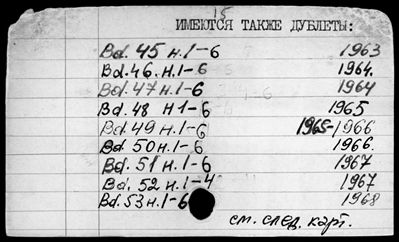 15
ИМЕЮТСЯ ТАКЖЕ ДУБЛЕТЫ:
Bd. 45 н.1-6 1963
Bd. 46. н.1-6 1964.
Bd. 47 н.1-6 1964
Bd. 48 н1-6 1965
Bd. 49 н.1-6 1965-1966
Bd. 50 н.1-6 1966.
Bd. 51 н.1-6 1967
Bd. 52 н.1-4 1967
Bd. 53 н.1-6 1968
см. след. карт.